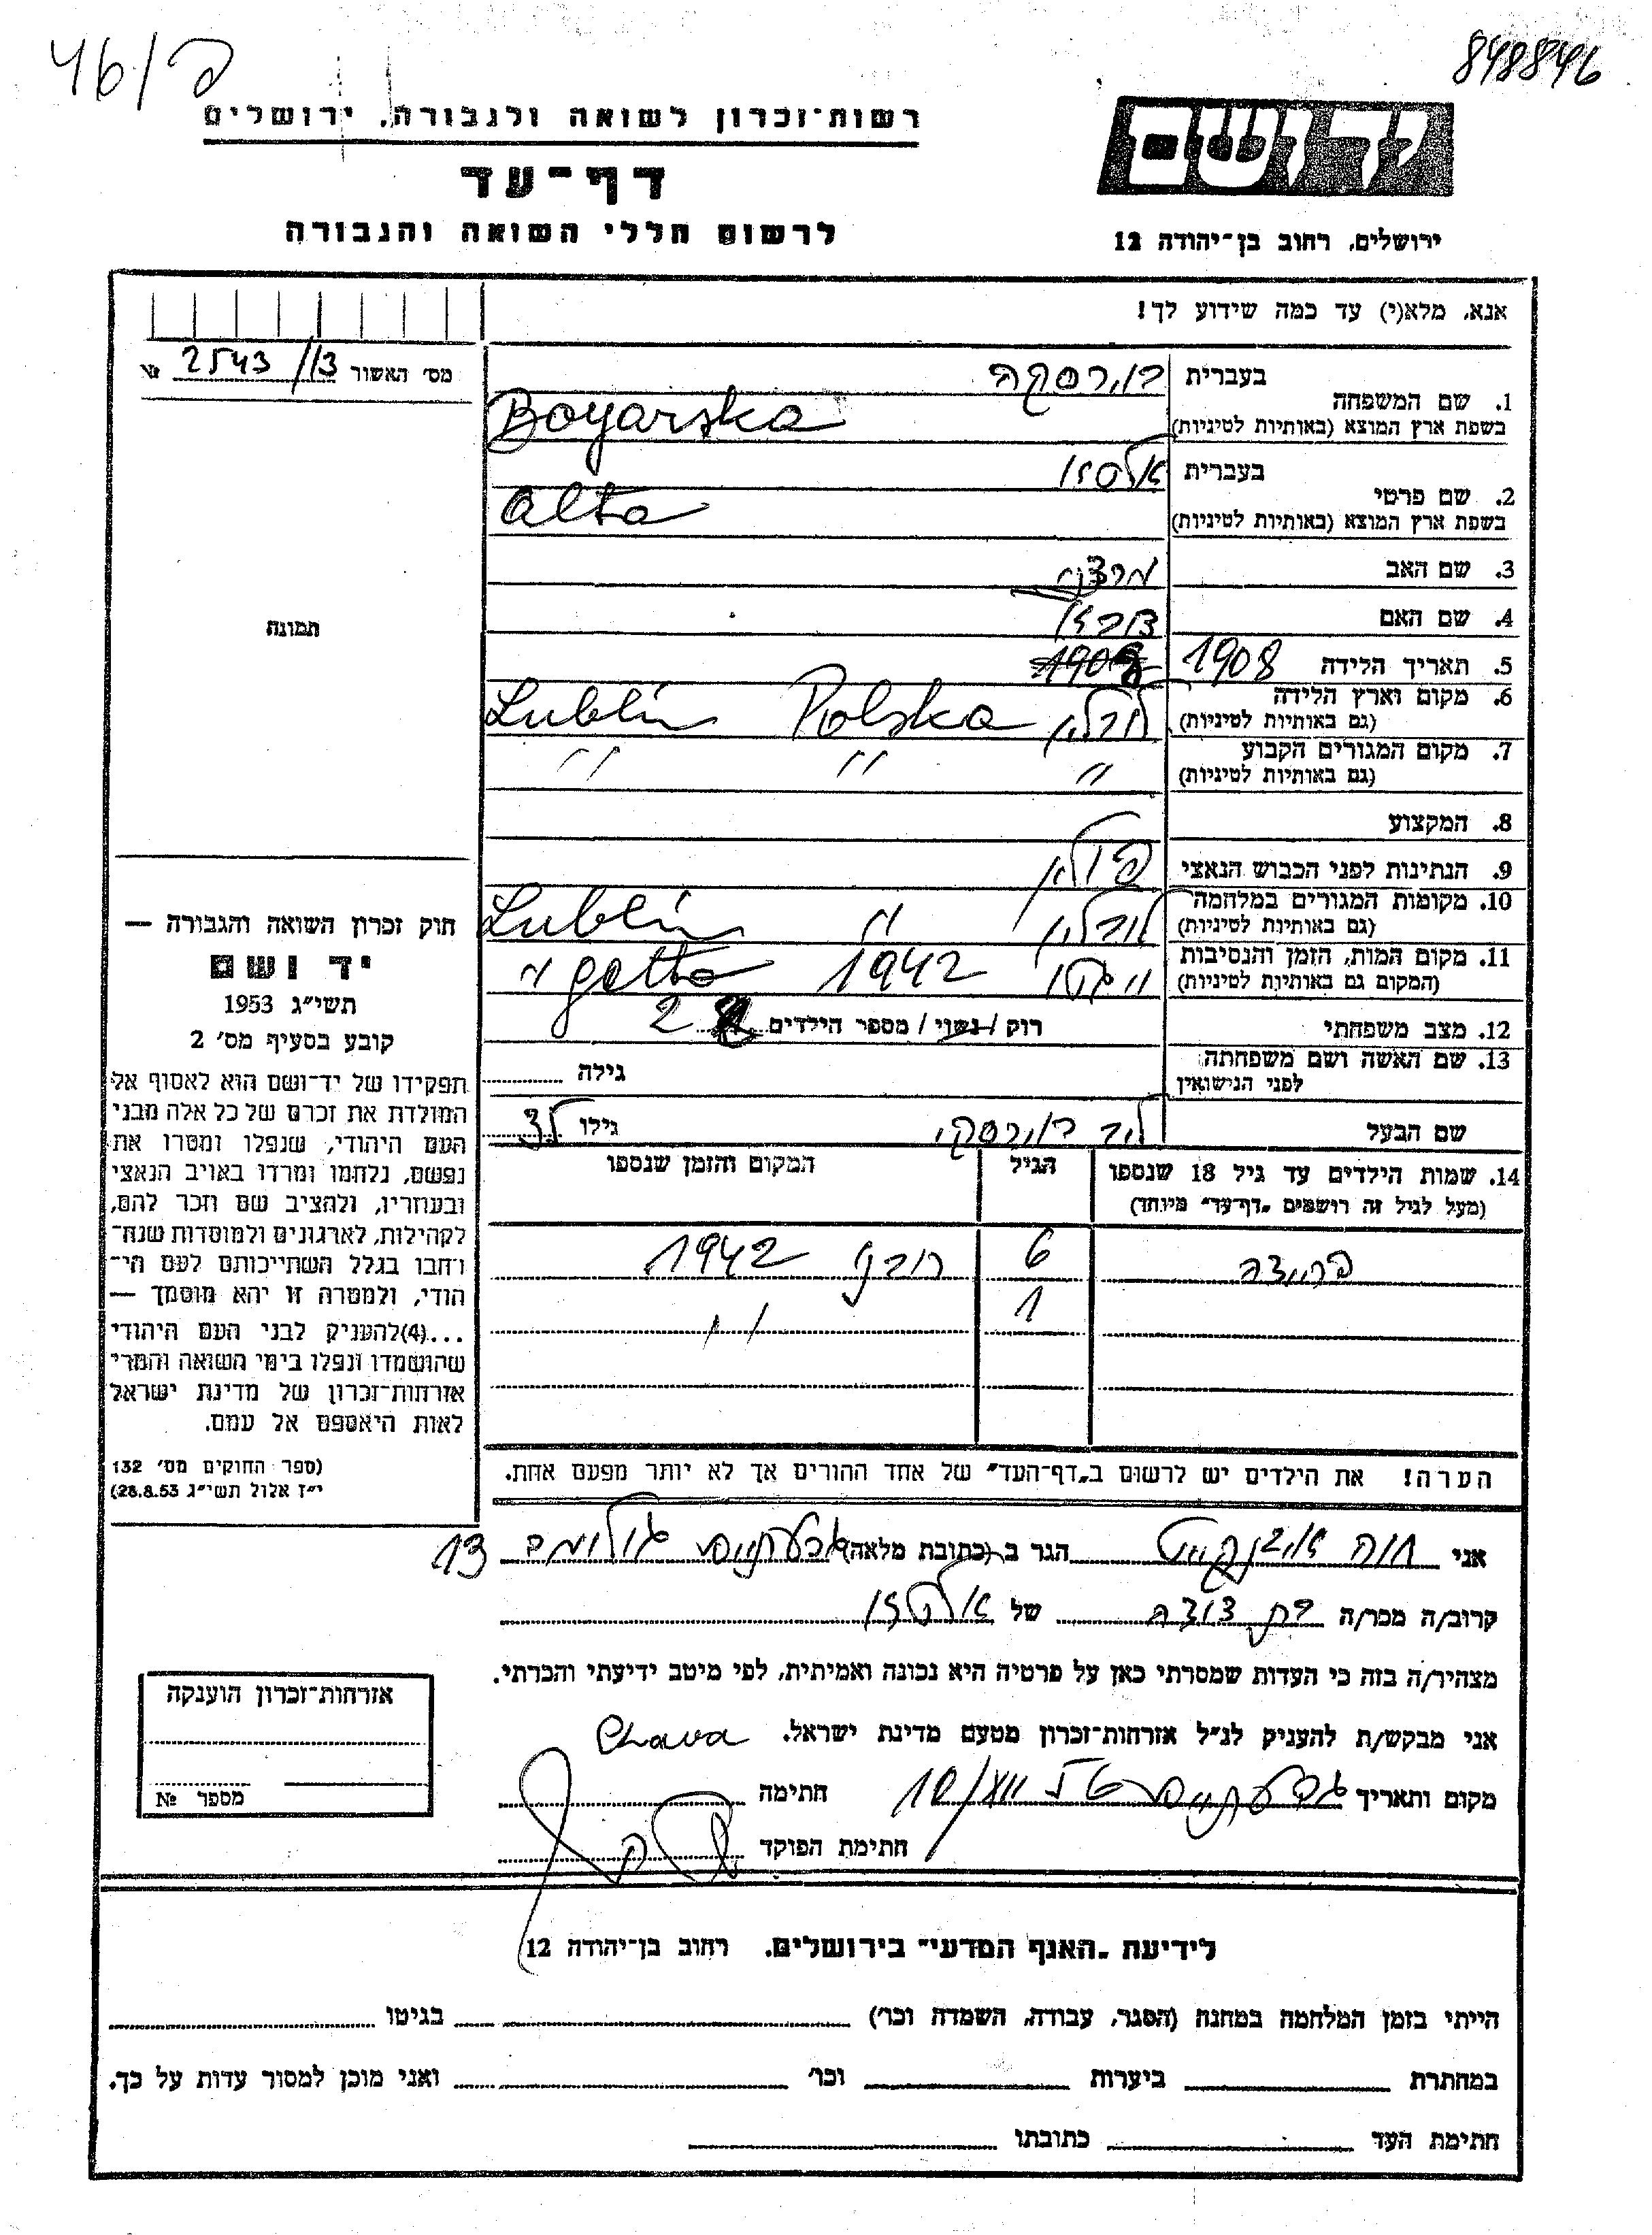 פ/46
848846
רשות־זכרון לשואה ולגבורה, ירושלים
דף־עד
לרשום חללי השואה והגבורה
ידושם
ירושלים, רחוב בן־יהודה 12
אנא, מלא(י) עד כמה שידוע לך!
מס׳ האשור 2543/13 №
תמונה
1. שם המשפחה
בעברית
בשפת ארץ המוצא (באותיות לטיניות) Boyarska
2. שם פרטי
בעברית
בשפת ארץ המוצא (באותיות לטיניות) Alta
3. שם האב
4. שם האם
5. תאריך הלידה 1908 1908
6. מקום וארץ הלידה
(גם באותיות לטיניות) לובלין Polska Lublin
7. מקום המגורים הקבוע
(גם באותיות לטיניות) " " "
8. המקצוע
9. הנתינות לפני הכבוש הנאצי פולין
10. מקומות המגורים במלחמה
(גם באותיות לטיניות) לובלין " Lublin
11. מקום המות, הזמן והנסיבות
(המקום גם באותיות לטיניות) " גטו 1942 " getto
12. מצב משפחתי רוק / נשוי / מספר הילדים 2
13. שם האשה ושם משפחתה
לפני הנישואין גילה
שם הבעל גילו
14. שמות הילדים עד גיל 18 שנספו
(מעל לגיל זה רושמים „דף־עד״ מיוחד)
הגיל
המקום והזמן שנספו
6 1942
1 "
הערה! את הילדים יש לרשום ב„דף־העד״ של אחד ההורים אך לא יותר מפעם אחת.
חוק זכרון השואה והגבורה —
יד ושם
תשי״ג 1953
קובע בסעיף מס׳ 2
תפקידו של יד־ושם הוא לאסוף אל
המולדת את זכרם של כל אלה מבני
העם היהודי, שנפלו ומסרו את
נפשם, נלחמו ומרדו באויב הנאצי
ובעוזריו, ולהציב שם וזכר להם,
לקהילות, לארגונים ולמוסדות שנח־
רחבו בגלל השתייכותם לעם הי־
הודי, ולמטרה זו יהא מוסמך —
...(4)להעניק לבני העם היהודי
שהושמדו ונפלו בימי השואה והמרי
אזרחות־זכרון של מדינת ישראל
לאות היאספם אל עמם.
(ספר החוקים מס׳ 132
י״ז אלול תשי״ג 28.8.53)
אני חוה הגר ב (כתובת מלאה) גבעתיים גולומב 13
קרוב/ה מכר/ה בת דודה של
מצהיר/ה בזה כי העדות שמסרתי כאן על פרטיה היא נכונה ואמיתית, לפי מיטב ידיעתי והכרתי.
אני מבקש/ת להעניק לנ״ל אזרחות־זכרון מטעם מדינת ישראל. Chava
מקום ותאריך גבעתיים חתימה
חתימת הפוקד
אזרחות־זכרון הוענקה
מספר №
לידיעת „האגף המדעי״ בירושלים. רחוב בן־יהודה 12
הייתי בזמן המלחמה במחנה (הסגר, עבודה, השמדה וכר׳) בגיטו
במחתרת ביערות וכר׳ ואני מוכן למסור עדות על כך.
חתימת העד כתובתו